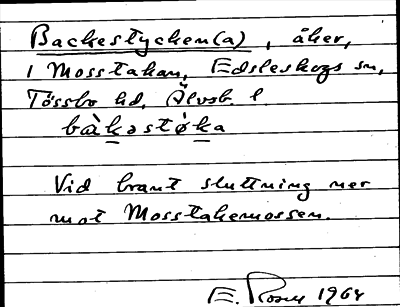 Backestycken(a), åker,
i Mosstakan, Edsleskogs sn,
Tössbo hd, Älvsb. l.
bàkəstøka
Vid brant sluttning ner
mot Mosstakemossen.
E. Rosen 1964